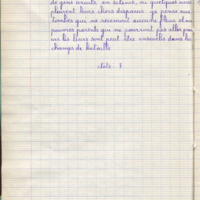 de gens errants en silence, où quelques uns
pleurent leurs chers disparus je pense aux
tombes qui ne recevront aucune fleur et aux
pauvres parents qui ne pourront pas aller prier
car les leurs sont peut être ensevelis dans les
champs de bataille